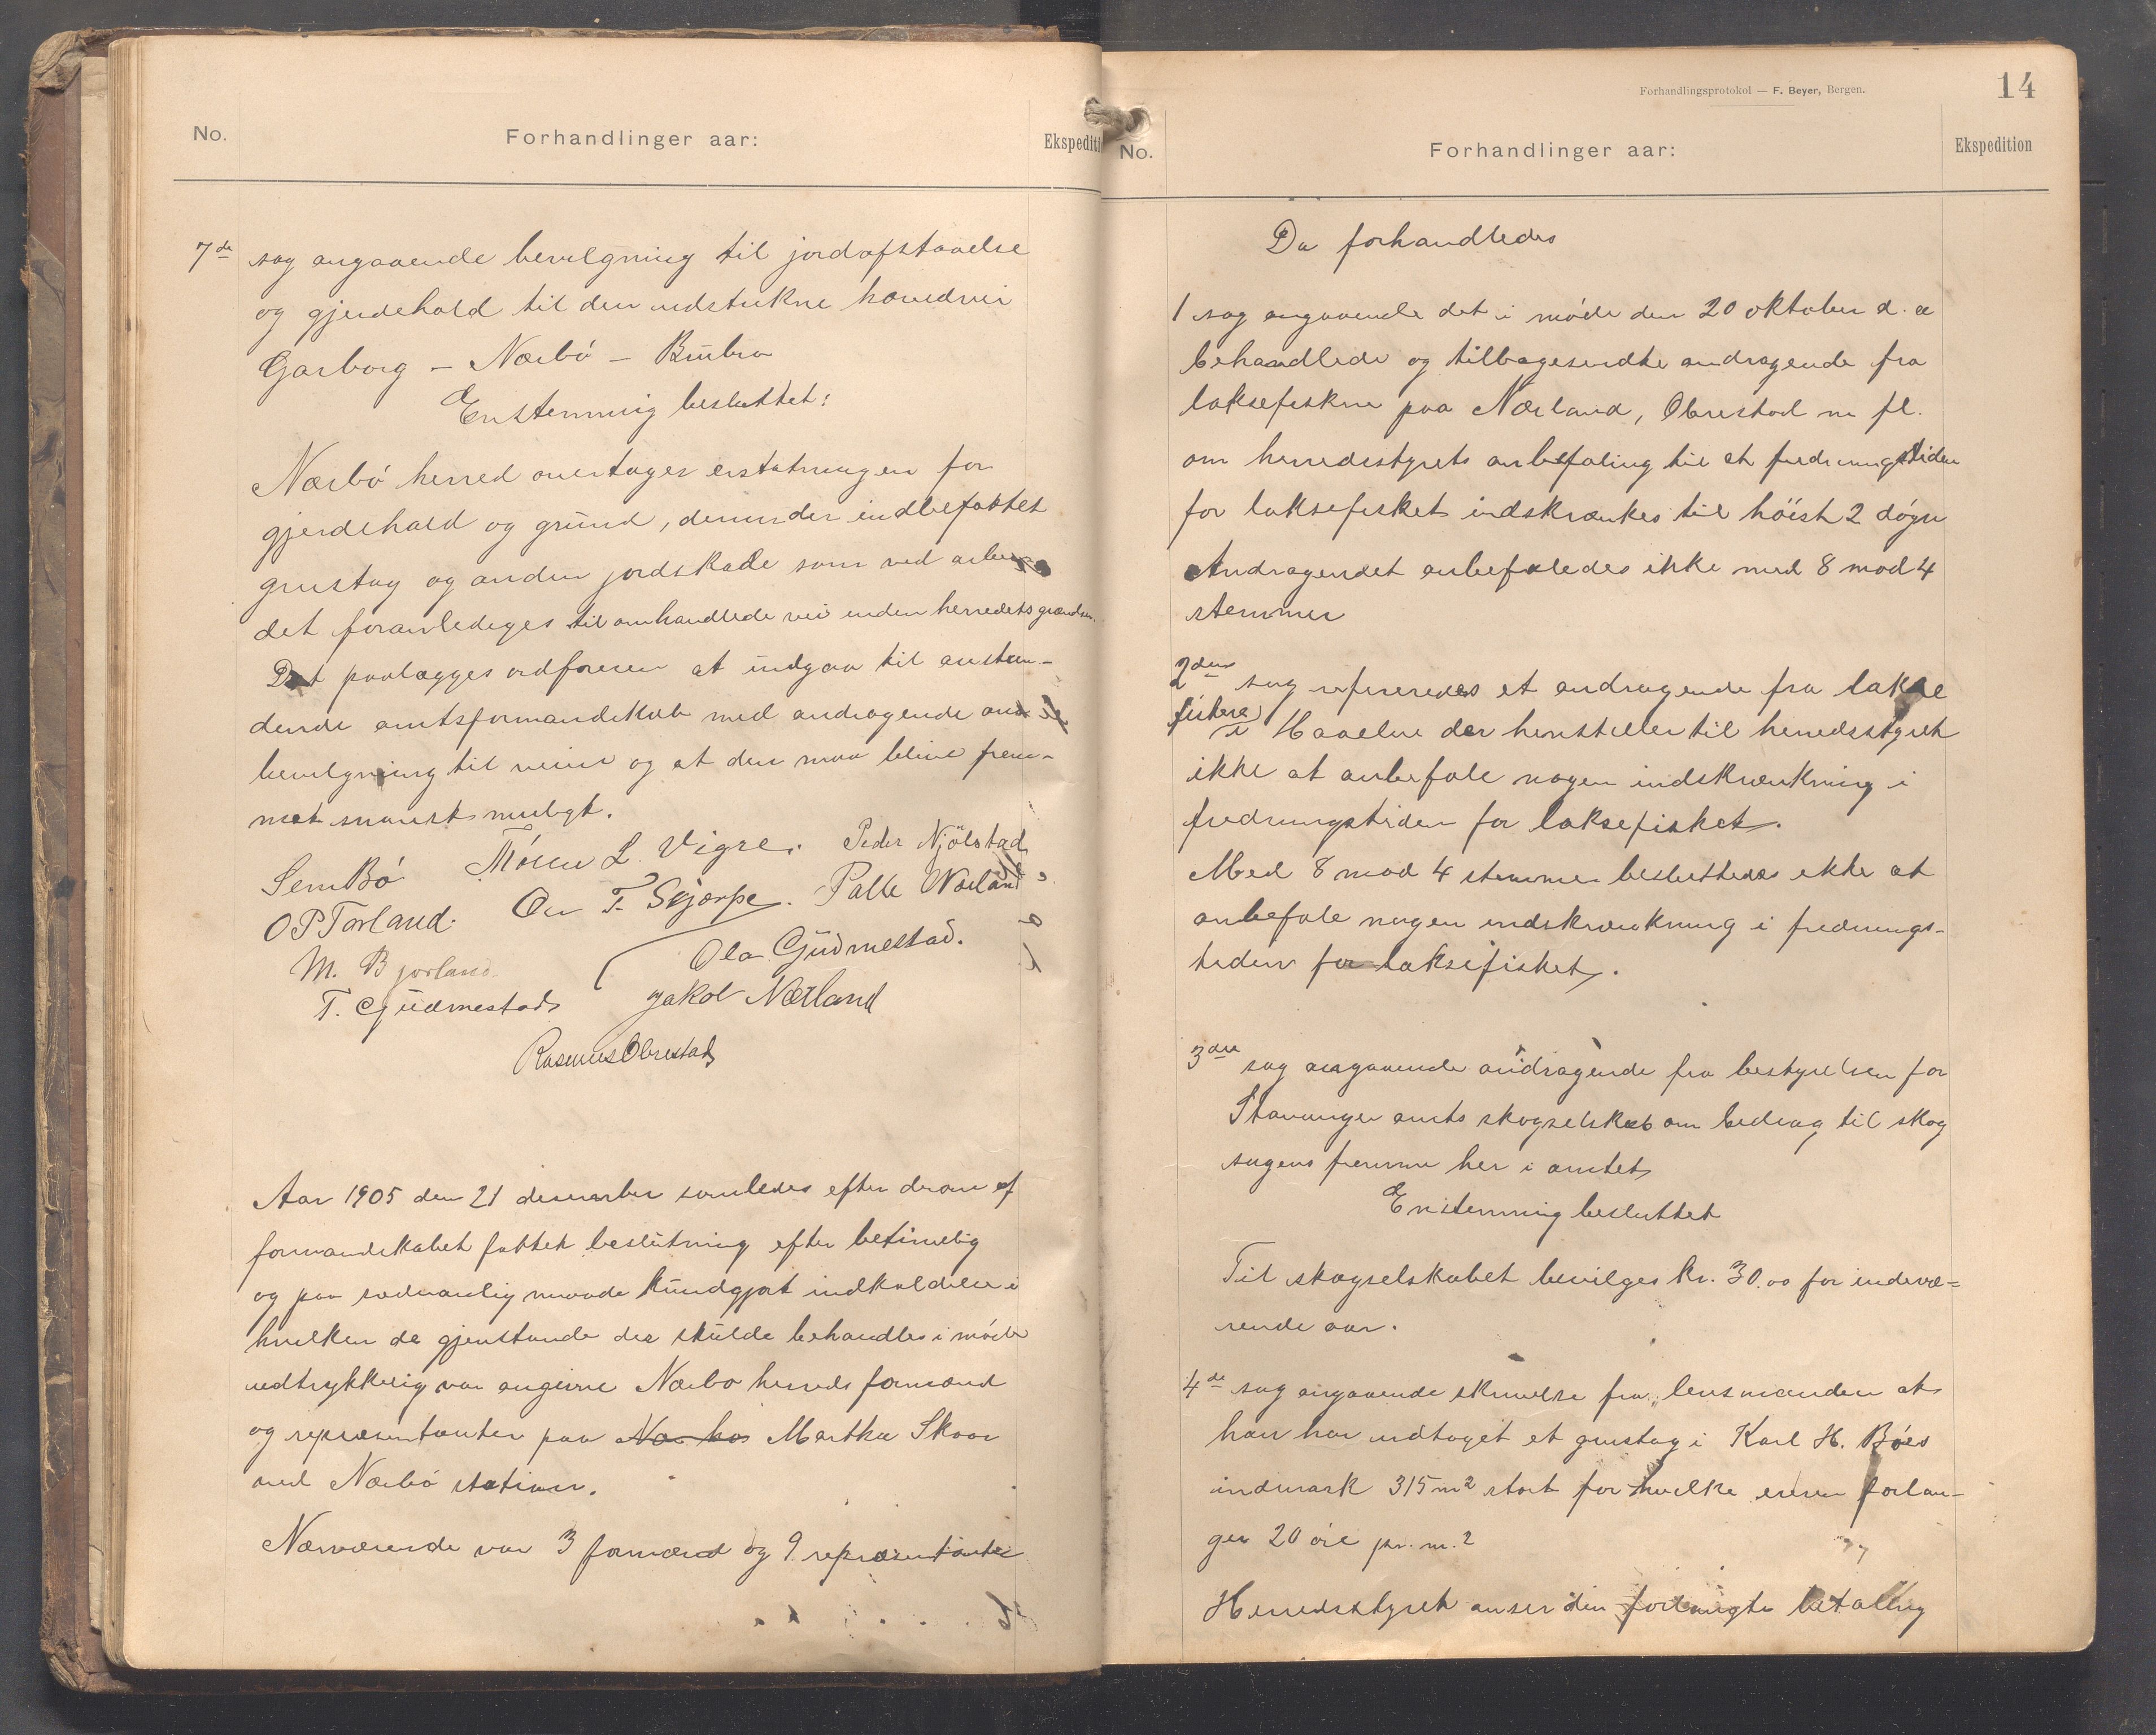 No.
Forhandlinger aar:
Ekspediti
7de sag angaaende bevilgning til jordafstaaelse
og gjerdehold til den udstukne hovedvei
Garborg – Nærbø – Brubro
Enstemmig besluttet:
Nærbø herred overtager erstatningen for
gjerdehold og grund, derunder indbefattet
grustag og anden jordskade som ved arbei
det foranlediges til omhandlede vei inden herredets grændser.
Det paalægges ordføreren at indgaa til anstun-
dende amtsformandskab med andragende om
bevilgning til veien og at den maa blive frem-
met snarest muligt.
Sem Bø Tønnes L. Vigre. Peder Njølstad
O P Torland. Ou T. Skjærpe. Palle Nærland
M. Bjorland Ola Gudmestad.
T. Gudmestad Jakob Nærland
Rasmus Obrestad
Aar 1905 den 21 desember samledes efter derom af
formandskabet fattet beslutning efter betimelig
og paa sædvanlig maade kundgjort indkaldelse i
hvilken de gjenstande der skulde behandles i møde
udtrykkelig var angivne Nærbø herreds formænd
og repræsentanter paa Næ hos Martha Skaar
ved Nærbø station.
Nærværende var 3 formænd og 9 repræsentanter
Forhandlingsprotokol — F. Beyer, Bergen.
14
No.
Forhandlinger aar:
Ekspedition
Da forhandledes
1 sag angaaende det i møde den 20 oktober d. a
behandlede og tilbagesendte andragende fra
laksefiskere paa Nærland, Obrestad m fl.
om herredsstyrets anbefaling til at fredningstiden
for laksefisket indskrænkes til høist 2 døgn
Andragendet anbefaledes ikke med 8 mod 4
stemmer
2den sag refereredes et andragende fra lakse
fiskere i Haaelve der henstiller til herredsstyret
ikke at anbefale nogen indskrænkning i
fredningstiden for laksefisket.
Med 8 mod 4 stemmer besluttedes ikke at
anbefale nogen indskrænkning i frednings-
tiden for laksefisket.
3die sag angaaende andragende fra bestyrelsen for
Stavanger amts skogselskab om bedrag til skog
sagens fremme her i amtet
Enstemmig besluttet
Til skogselskabet bevilges kr. 30.00 for indevæ=
rende aar.
4de sag angaaende skrivelse fra lensmanden at
han har udtaget et grustag i Karl H. Bøes
indmark 315 m2 stort for hvilke eieren forlan-
ger 20 øre pr. m.2
Herredsstyret anser den forlangte betaling